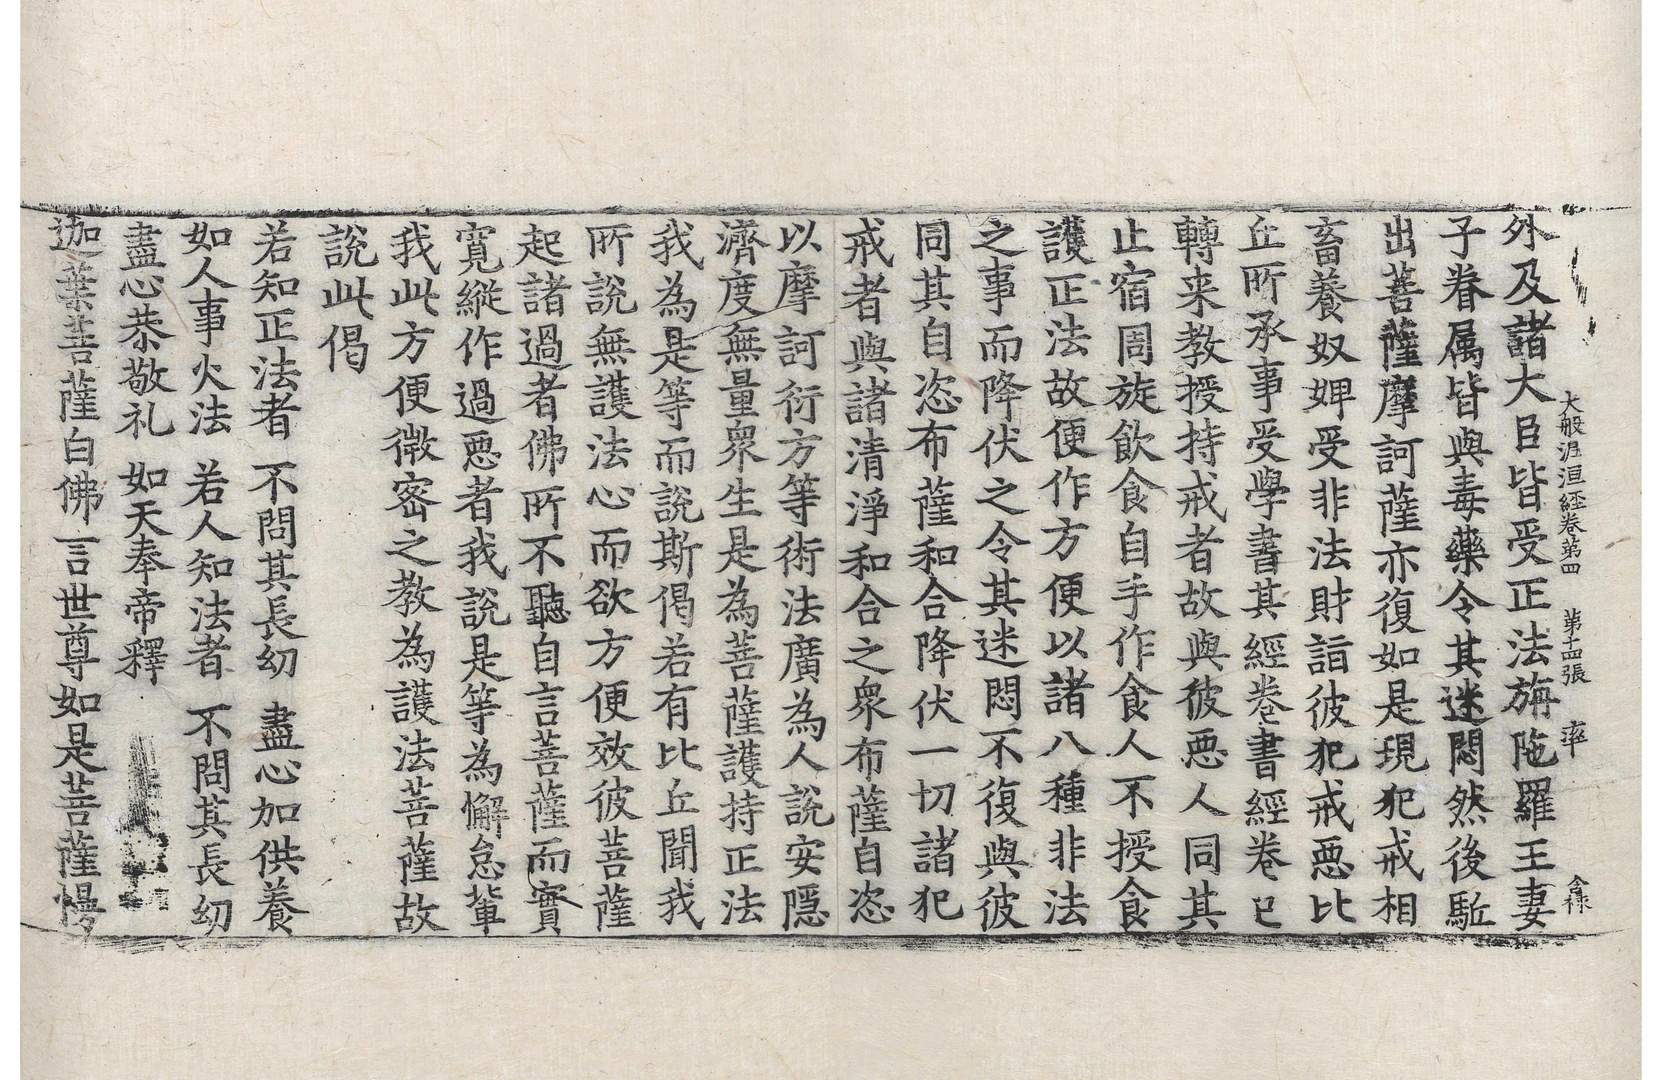 大般泥洹経卷苐四 苐十四張 率
外及諸大臣皆受正法旃陁羅王妻
子眷属皆與毒藥令其迷悶然後駈
出菩薩摩訶薩亦復如是現犯戒相
畜養奴婢受非法財詣彼犯戒惡比
丘所承事受學書其經卷書經卷已
轉来教授持戒者故與彼惡人同其
止宿周旋飲食自手作食人不授食
護正法故便作方便以諸八種非法
之事而降伏之令其迷悶不復與彼
同其自恣布薩和合降伏一切諸犯
戒者與諸清淨和合之衆布薩自恣
以摩訶衍方等術法廣為人說安隱
濟度無量衆生是為菩薩護持正法
我為是等而說斯偈若有比丘聞我
所說無護法心而欲方便效彼菩薩
起諸過者佛所不聽自言菩薩而實
寬縱作過惡者我說是等為懈怠輩
我此方便微密之教為護法菩薩故
說此偈
若知正法者 不問其長幼 盡心加供養
如人事火法 若人知法者 不問其長幼
盡心恭敬礼 如天奉帝釋
迦葉菩薩白佛言世尊如是菩薩慢